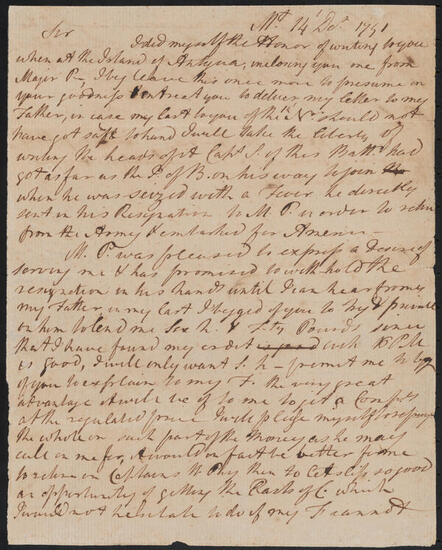 Mt 14 Dr 1751
Sir
I did myself the Honor of writing to you
when at the Island of Antigua, inclosing you one from
Major P— I beg leave this once more to presume on
your goodness & intreat you to deliver my letter to my
Father, in case my last to you of the should not
have got safe to hand I will take the liberty of
writing the heads of it Capt. S. of this Batt. had
got as far as the I. of B. on his way to join
when he was seized with a Fever he directly
sent in his Resignation to M. P. in order to retire
from the Army & embarked for America—
M. P. was pleased to express a Desire of
serving me & has promised to withhold the
resignation in his hands until I can hear from
my Father, in my last I begged of you to try & prevail
on him to lend me Six h. & Fifty Pounds since
that I have found my credit with
is good, I will only want 5 h— permit me to beg
of you to explain to my F. the very great
advantage it will be of to me to get a Comp.
at the regulated price I will pledge myself to repay
the whole or such part of the Money as he may
call on me for, it would in fact be better for me
to retire on Captains ½ Pay then to let slip so good
an opportunity of getting the Rank of C. which
I would not hesitate to do if my F. cannot